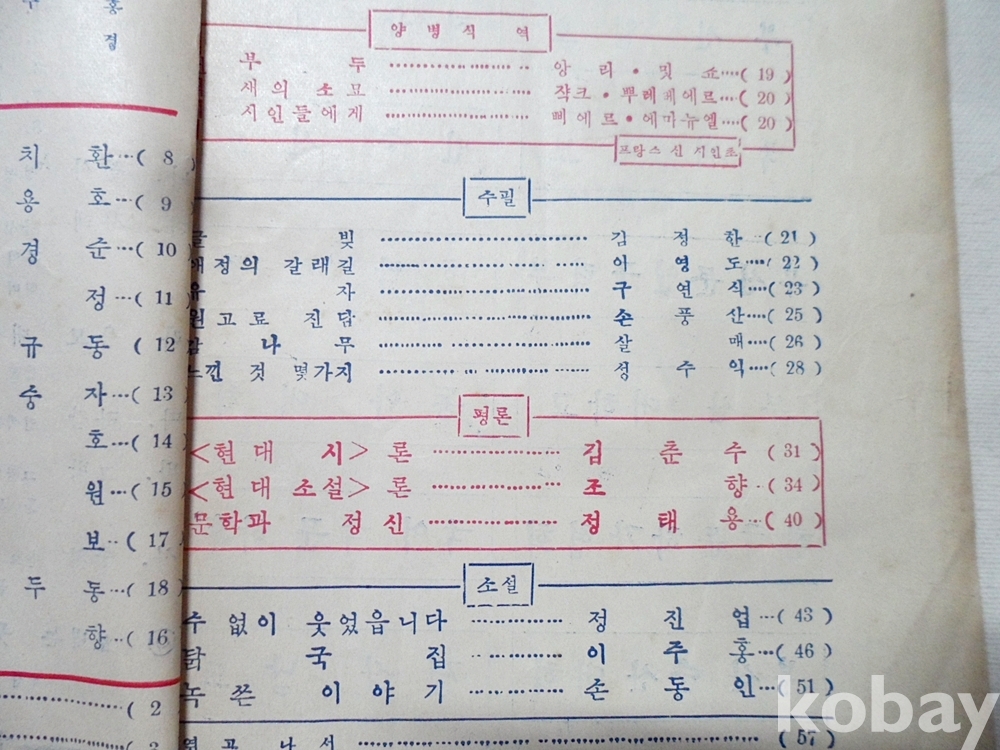 홍
경
치 환…( 8
용 호…( 9
경 순…( 10
정…( 11
규 동 ( 12
숭 자…( 13
호…( 14
원…( 15
보…( 17
두 동…( 18
향…( 16
( 2
양 병 식 역
부 두 …… 앙 리 • 밋 쇼…( 19 )
새의 소묘 …… 쟉크 • 뿌레페에르…( 20 )
시인들에게 …… 삐에르 • 에마뉴엘…( 20 )
프랑스 신 시인초
수필
글 빛 …… 김 정 한…( 21 )
애정의 갈래길 …… 이 영 도…( 22 )
유 자 …… 구 연 식…( 23 )
원고료 진담 …… 손 풍 산…( 25 )
감 나 무 …… 살 매…( 26 )
느낀 것 몇가지 …… 성 수 익…( 28 )
평론
<현 대 시> 론 …… 김 춘 수 ( 31 )
<현 대 소 설> 론 …… 조 향…( 34 )
문학과 정 신 …… 정 태 용…( 40 )
소설
수 없이 웃었읍니다 …… 정 진 업…( 43 )
닭 국 집 …… 이 주 홍…( 46 )
녹 쓴 이 야 기 …… 손 동 인…( 51 )
( 57 )
kobay